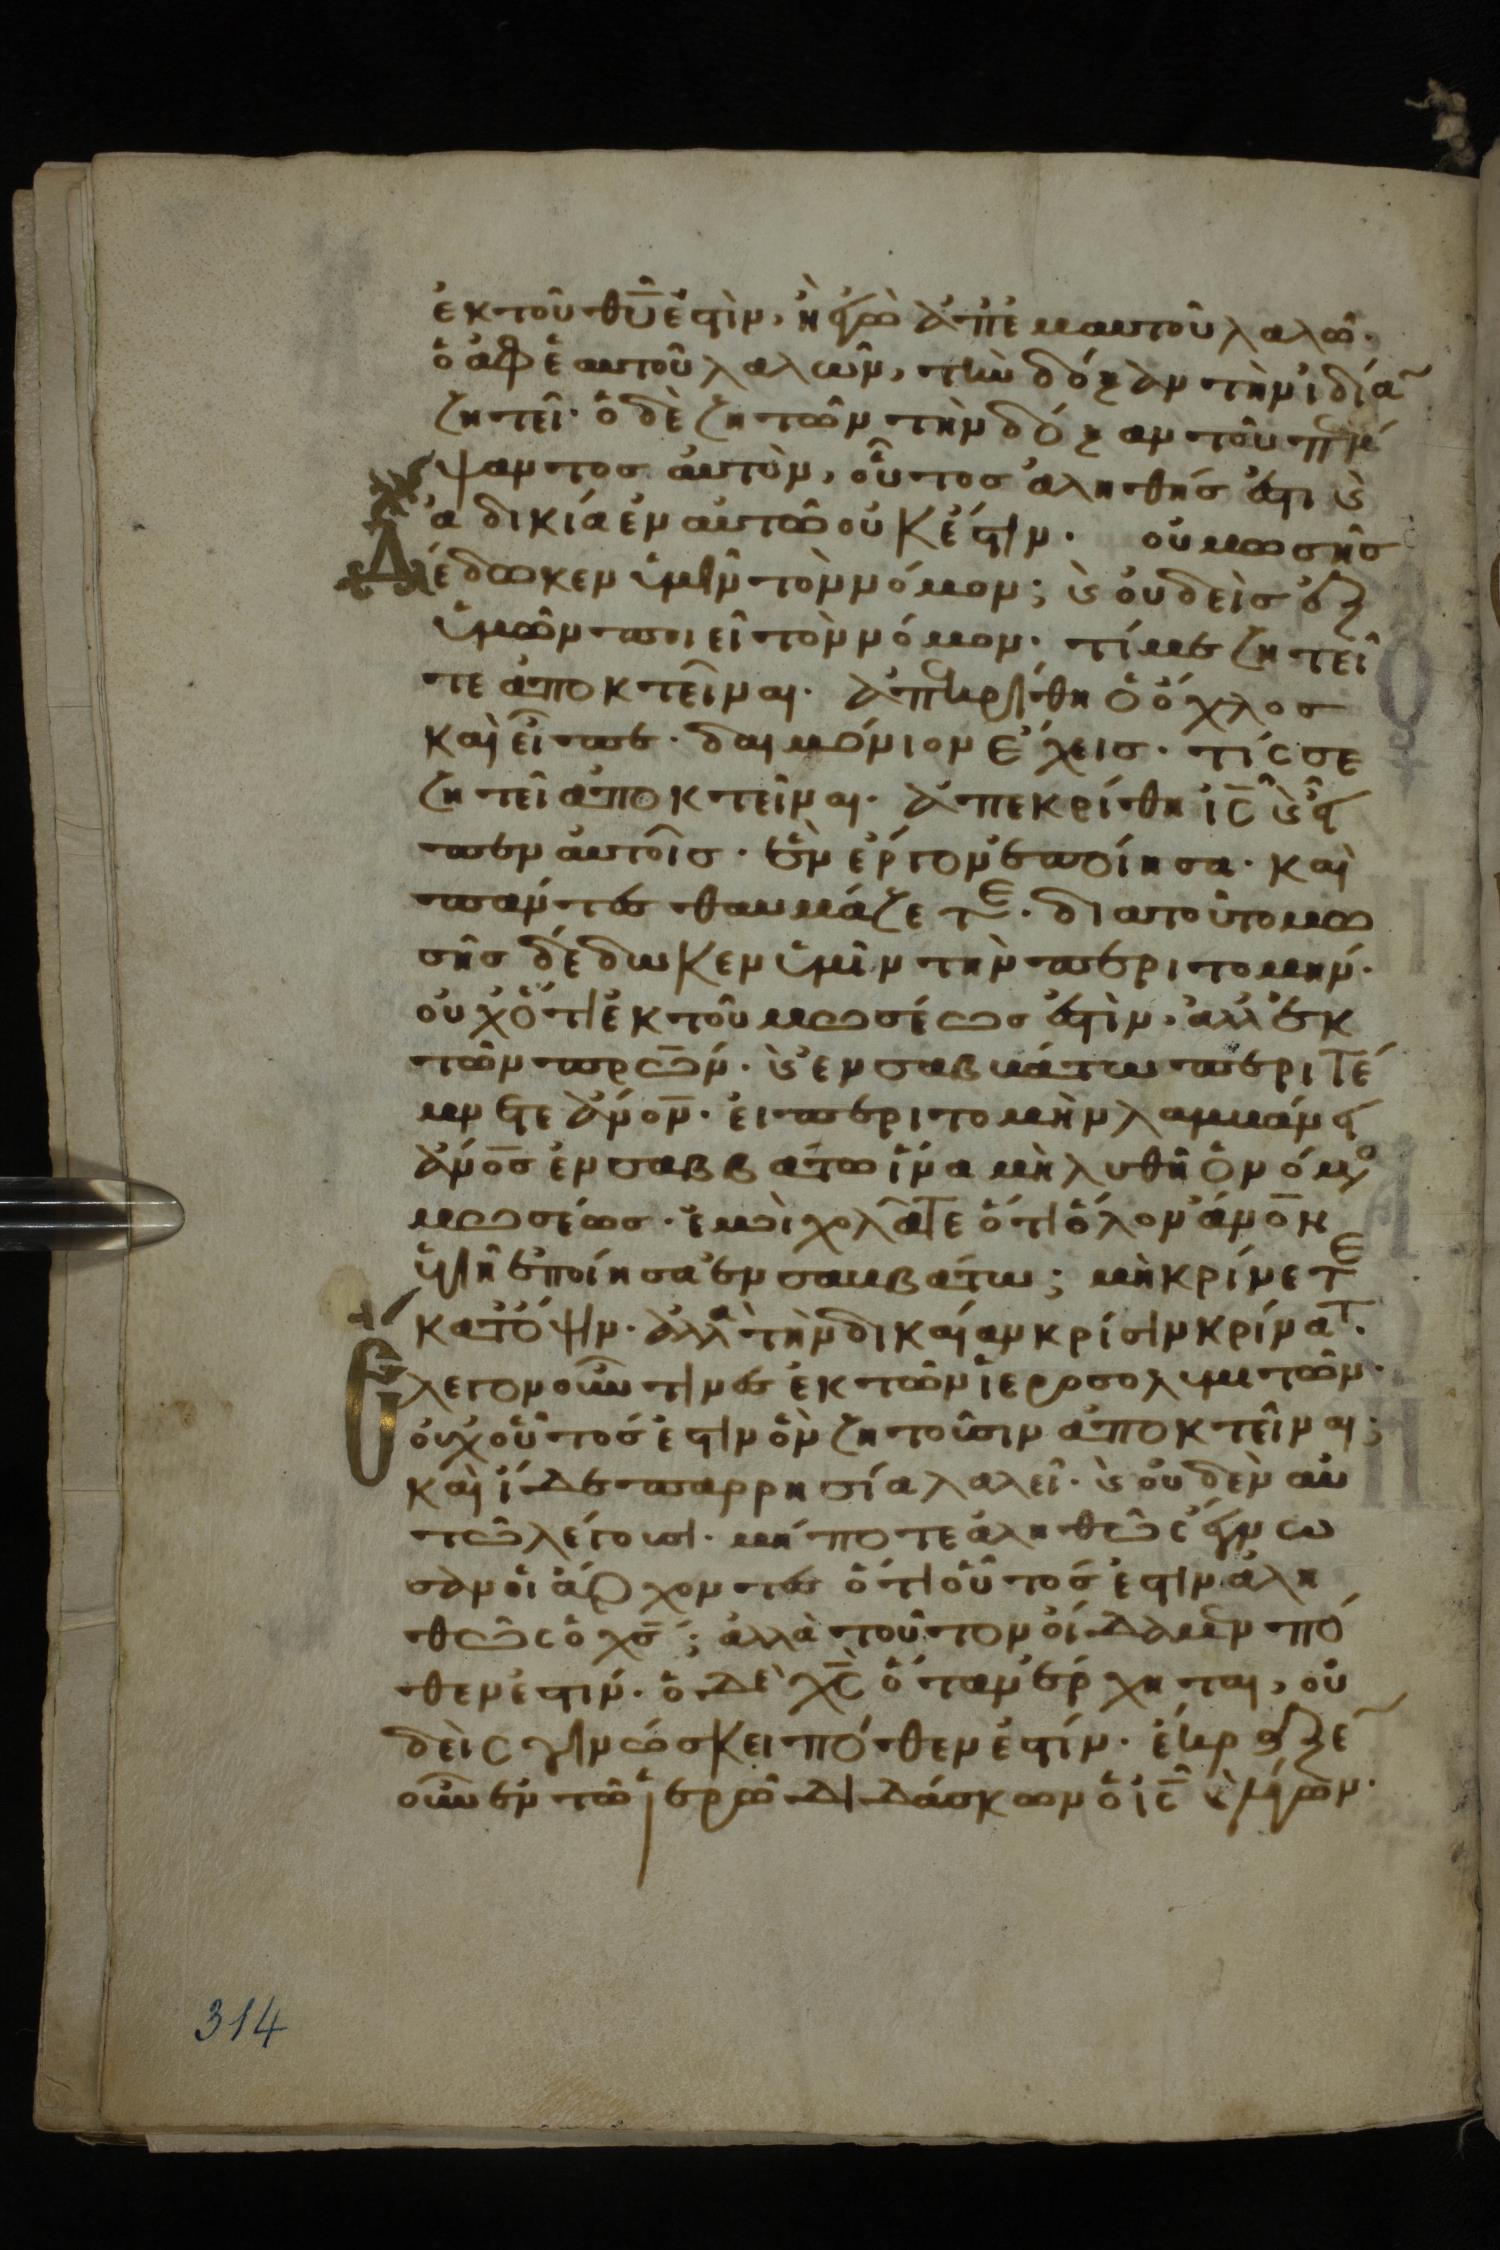 ἐκ τοῦ θῡ ἐστὶν, ἢ ἐγὼ ἀπ ἐμαυτοῦ λαλῶ·
ὁ ἀφ ἑαυτοῦ λαλῶν, τὴν δόξαν τὴν ἰδίαν
ζητεῖ· ὁ δὲ ζητῶν τὴν δόξαν τοῦ πέμ
ψαντος αὐτὸν, οὗτος ἀληθής ἐστι καὶ
ἀδικία ἐν αὐτῶ οὐκ ἔστιν· οὐ μωσῆς
δέδωκεν ὑμῖν τὸν νόμον; καὶ οὐδεὶς ἐξ
ὑμῶν ποιεῖ τὸν νόμον· τί με ζητεῖ
τε ἀποκτεῖναι· ἀπεκρίθη ὁ ὄχλος
καὶ εἶπε· δαιμόνιον ἔχεις· τίς σε
ζητεῖ ἀποκτεῖναι· ἀπεκρίθη ἰς̄ καὶ εἶ
πεν αὐτοῖς· ἓν ἔργον ἐποίησα· καὶ
πάντες θαυμάζετε· διατοῦτο μω
σῆς δέδωκεν ὑμῖν τὴν περιτομήν·
οὐχ ὅτι ἐκ τοῦ μωσέως ἐστὶν· ἀλλ ἐκ
τῶν πρω̄ν· καὶ ἐν σαββάτω περιτέ
μνετε ἄνον̄· εἰ περιτομὴν λαμβάνει
ἄνος̄ ἐν σαββάτω ἵνα μὴ λυθῆ ὁ νόμο
μωσέως· ἐμοὶ χολᾶτε ὅτι ὅλον ἄνον̄ ὑ
γιῆ ἐποίησα ἐν σαββάτω; μὴ κρίνετε
κατόψιν· ἀλλὰ τὴν δικαίαν κρίσιν κρίνατ·
Ἔλεγον οὖν τινες ἐκ τῶν ἱεροσολυμιτῶν·
οὐχ οὗτός ἐστιν ὃν ζητοῦσιν ἀποκτεῖναι;
καὶ ἴδε παρρησία λαλεῖ· καὶ οὐδὲν αὐ
τῶ λέγουσι· μήποτε ἀληθῶς ἔγνω
σαν οἱ ἄρχοντες ὅτι οὗτός ἐστιν ἀλη
θῶς ὁ χς̄; ἀλλὰ τοῦτον οἴδαμεν πό
θεν ἐστιν· ὁ δὲ χς̄ ὅταν ἔρχηται, οὐ
δεὶς γινώσκει πόθεν ἐστίν· ἔκραξεν
οὖν ἐν τῶ ἱερῶ διδάσκων ὁ ἰς̄ καὶ λέγων·
314